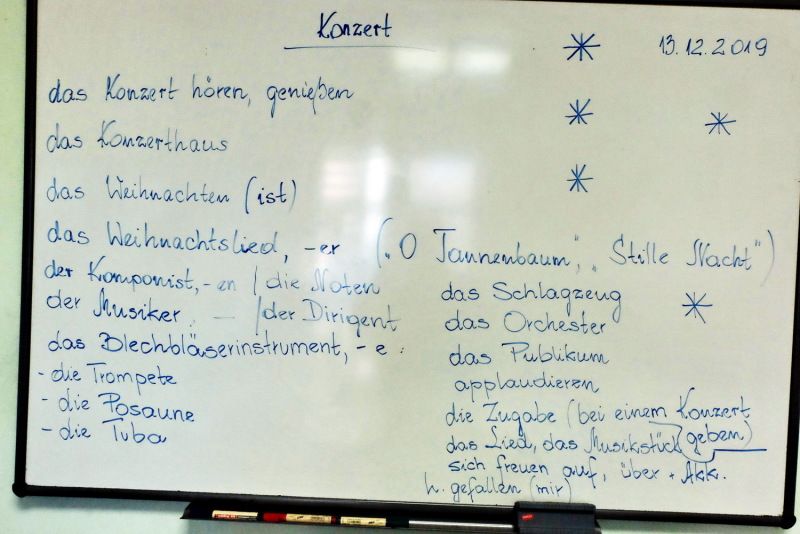 Konzert
13.12.2019
das Konzert hören, genießen
das Konzerthaus
das Weihnachten (ist)
das Weihnachtslied, -er („O Tannenbaum", „Stille Nacht")
der Komponist, -en / die Noten
der Musiker, - / der Dirigent
das Blechbläserinstrument, -e:
- die Trompete
- die Posaune
- die Tuba
das Schlagzeug
das Orchester
das Publikum
applaudieren
die Zugabe (bei einem Konzert
geben)
das Lied, das Musikstück
sich freuen auf, über + Akk.
h. gefallen (mir)